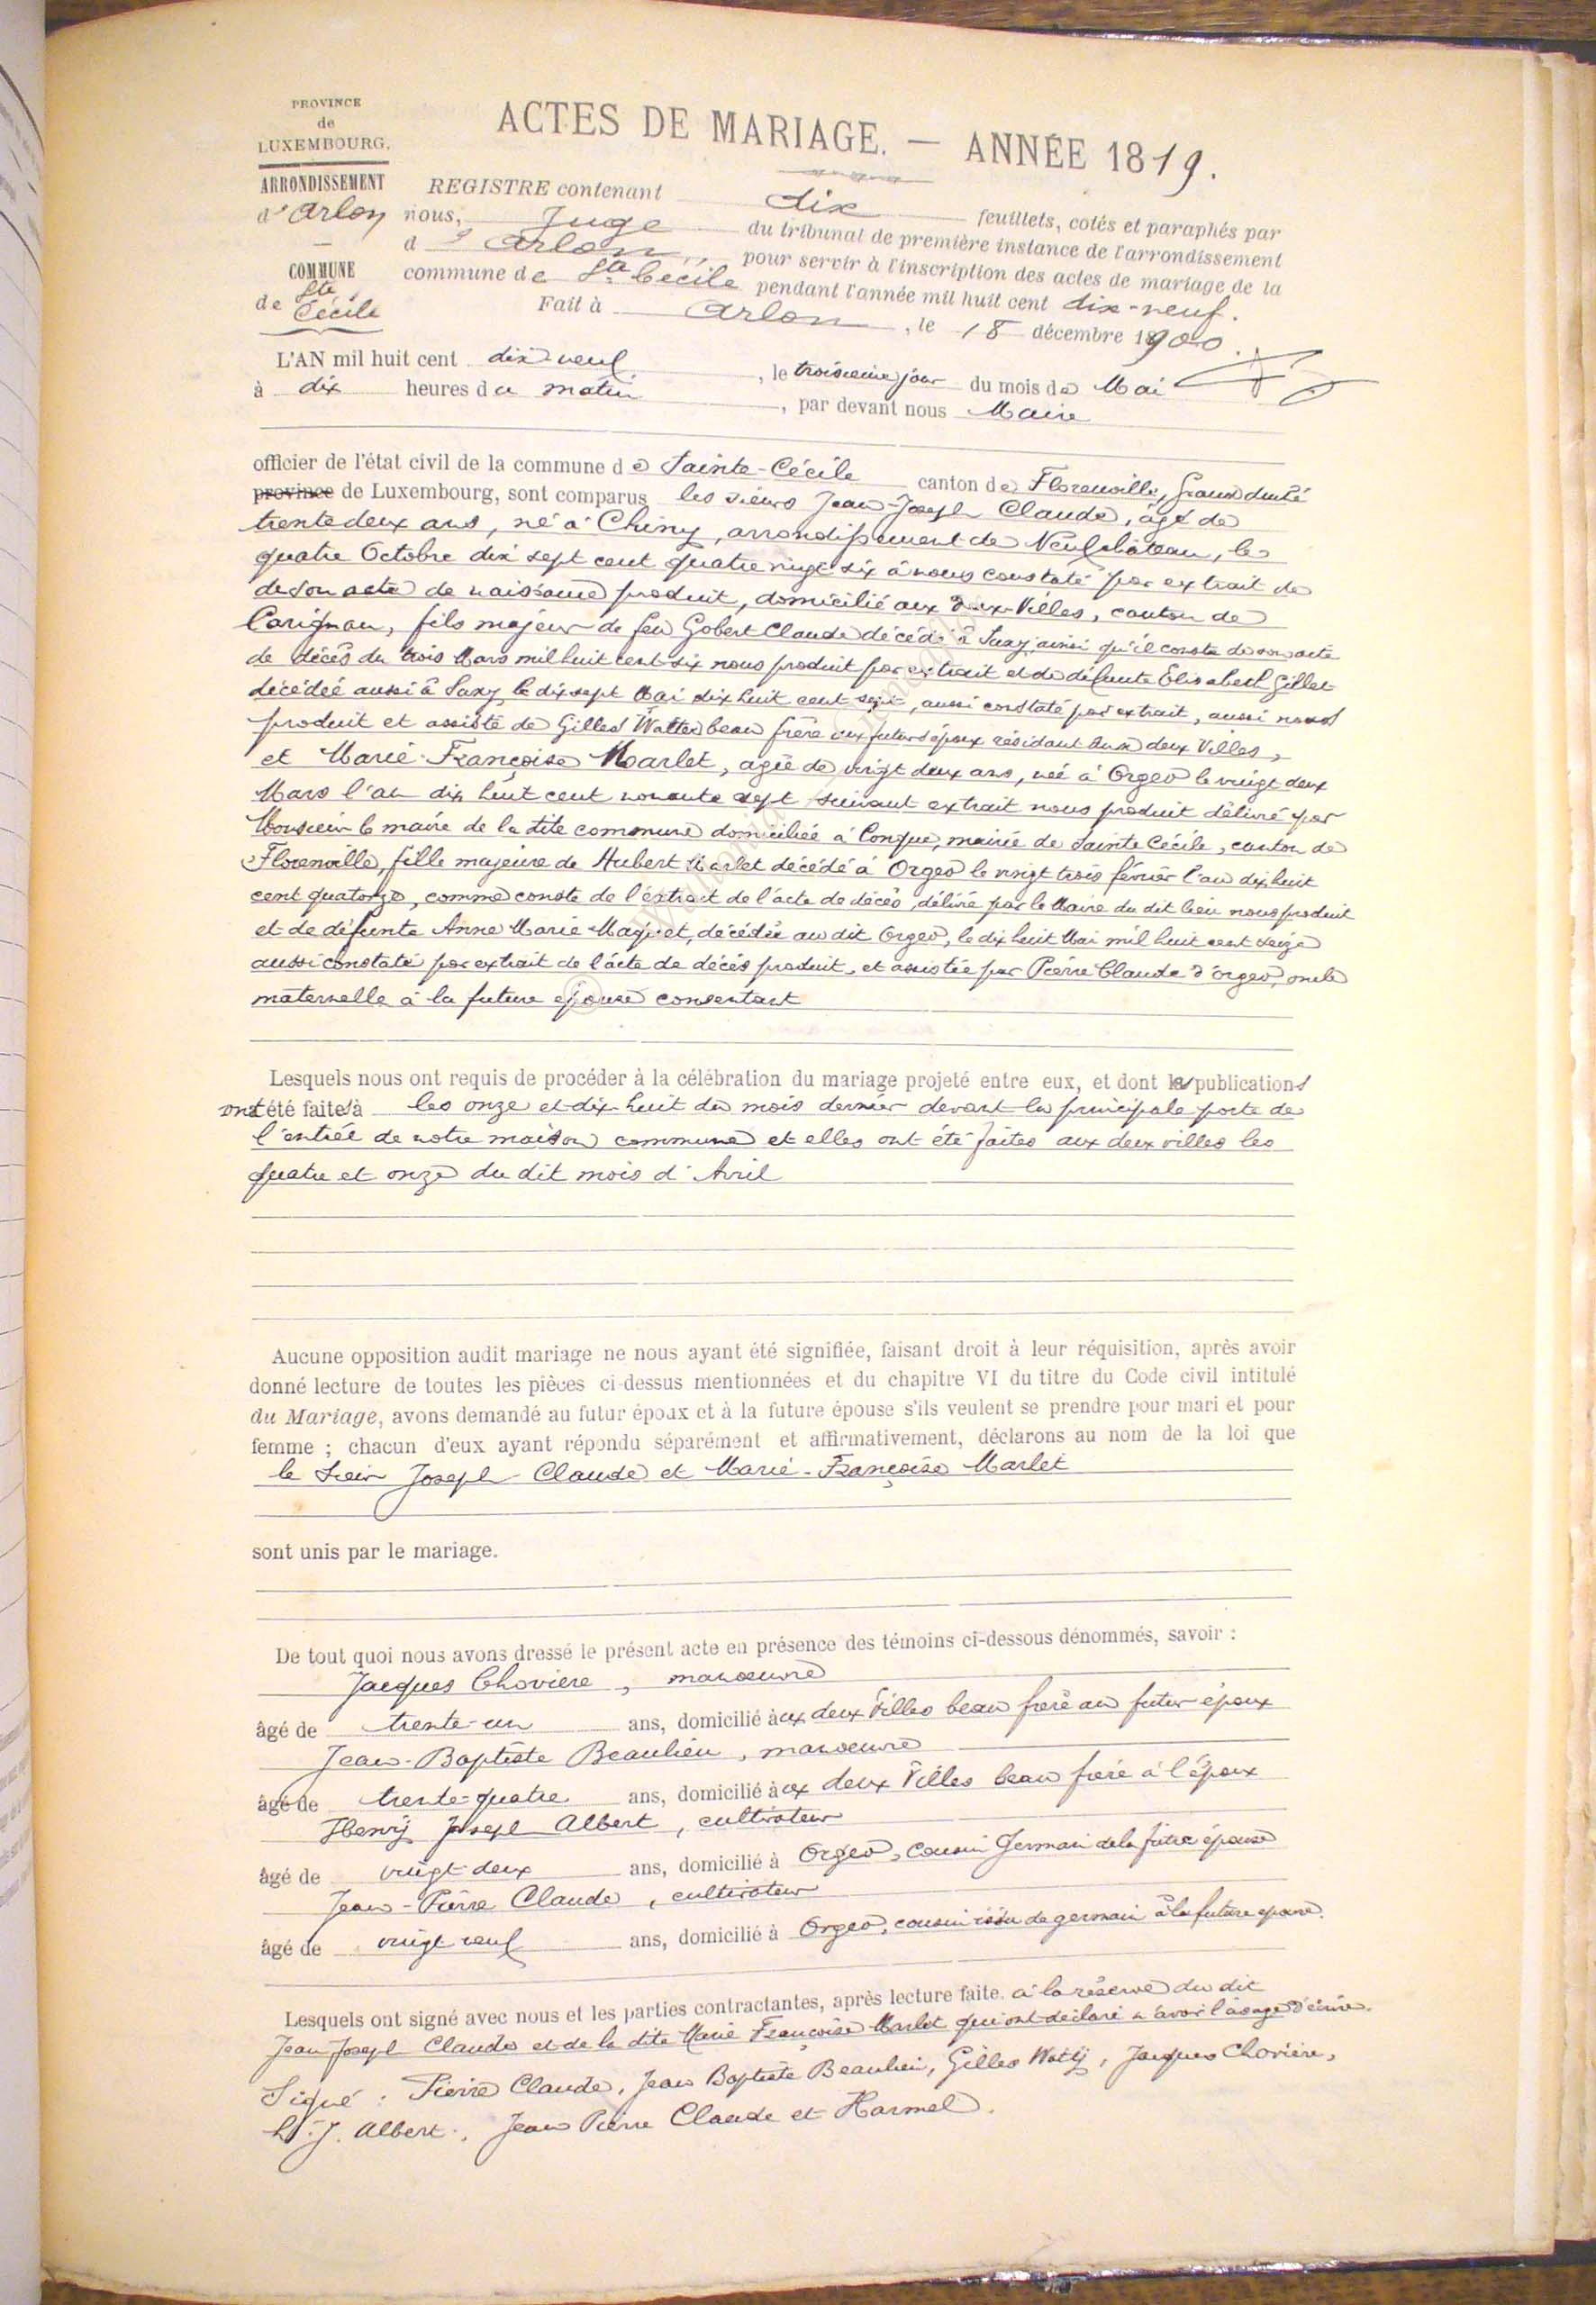 PROVINCE
de
LUXEMBOURG.
ARRONDISSEMENT
d'Arlon
COMMUNE
de Ste Cécile
ACTES DE MARIAGE. — ANNÉE 1819.
REGISTRE contenant dix feuillets, cotés et paraphés par
nous, Juge du tribunal de première instance de l'arrondissement
d'Arlon, pour servir à l'inscription des actes de mariage de la
commune de Sta Cecile pendant l'année mil huit cent dix-neuf.
Fait à Arlon, le 18 décembre 1900.
L'AN mil huit cent dix neuf, le troisième jour du mois de Mai
à dix heures du matin, par devant nous Maire
officier de l'état civil de la commune de Sainte-Cécile canton de Florenville, Grand duché
province de Luxembourg, sont comparus les sieurs Jean-Joseph Claude, âgé de
trente deux ans, né à Chiny, arrondissement de Neufchâteau, le
quatre Octobre dix sept cent quatre vingt six à nous constaté par extrait de
de son acte de naissance produit, domicilié aux deux Villes, canton de
Carignan, fils majeur de feu Gobert Claude décédé à Suxy, ainsi qu'il conste de son acte
de décès du trois Mars mil huit cent six nous produit par extrait et de défunte Elisabeth Gillet
décédée aussi à Suxy, le dix sept Mai dix huit cent sept, aussi constaté par extrait, aussi nous
produit et assisté de Gilles Watter beau frère aux futurs époux résidant aux deux Villes,
et Marie-Françoise Marlet, agée de vingt deux ans, née à Orgeo le vingt deux
Mars l'an dix huit cent nonante sept suivant extrait nous produit délivré par
Monsieur le maire de la dite commune domiciliée à Conque, mairie de Sainte Cécile, canton de
Florenville, fille majeure de Hubert Marlet décédé à Orgeo le vingt trois février l'an dix huit
cent quatorze, comme conste de l'extrait de l'acte de décès, délivré par le Maire du dit lieu nous produit
et de défunte Anne Marie Maquet, décédée au dit Orgeo, le dix huit Mai mil huit cent seize
aussi constaté par extrait de l'acte de décès produit, et assistée par Pierre Claude d'Orgeo, oncle
maternelle à la future épouse consentant
Lesquels nous ont requis de procéder à la célébration du mariage projeté entre eux, et dont les publications
ont été faites à les onze et dix-huit du mois dernier devant la principale porte de
l'entrée de notre maison commune et elles ont été faites aux deux villes les
quatre et onze du dit mois d'Avril
Aucune opposition audit mariage ne nous ayant été signifiée, faisant droit à leur réquisition, après avoir
donné lecture de toutes les pièces ci-dessus mentionnées et du chapitre VI du titre du Code civil intitulé
du Mariage, avons demandé au futur époux et à la future épouse s'ils veulent se prendre pour mari et pour
femme ; chacun d'eux ayant répondu séparément et affirmativement, déclarons au nom de la loi que
le Sieur Joseph Claude et Marie-Françoise Marlet
sont unis par le mariage.
De tout quoi nous avons dressé le présent acte en présence des témoins ci-dessous dénommés, savoir :
Jacques Chovière, manœuvre
âgé de trente-un ans, domicilié aux deux Villes beau frère au futur époux
Jean-Baptiste Beaulieu, manœuvre
âgé de trente-quatre ans, domicilié aux deux Villes beau frère à l'époux
Henry Joseph Albert, cultivateur
âgé de vingt-deux ans, domicilié à Orgeo, cousin Germain de la future épouse
Jean-Pierre Claude, cultivateur
âgé de vingt neuf ans, domicilié à Orgeo, cousin issu de germain à la future épouse.
Lesquels ont signé avec nous et les parties contractantes, après lecture faite. à la réserve du dit
Jean Joseph Claude et de la dite Marie Françoise Marlet qui ont déclaré n'avoir l'usage d'écrire.
Signé : Pierre Claude, Jean Baptiste Beaulieu, Gilles Watly, Jacques Chovière,
H. J. Albert, Jean Pierre Claude et Harmel.